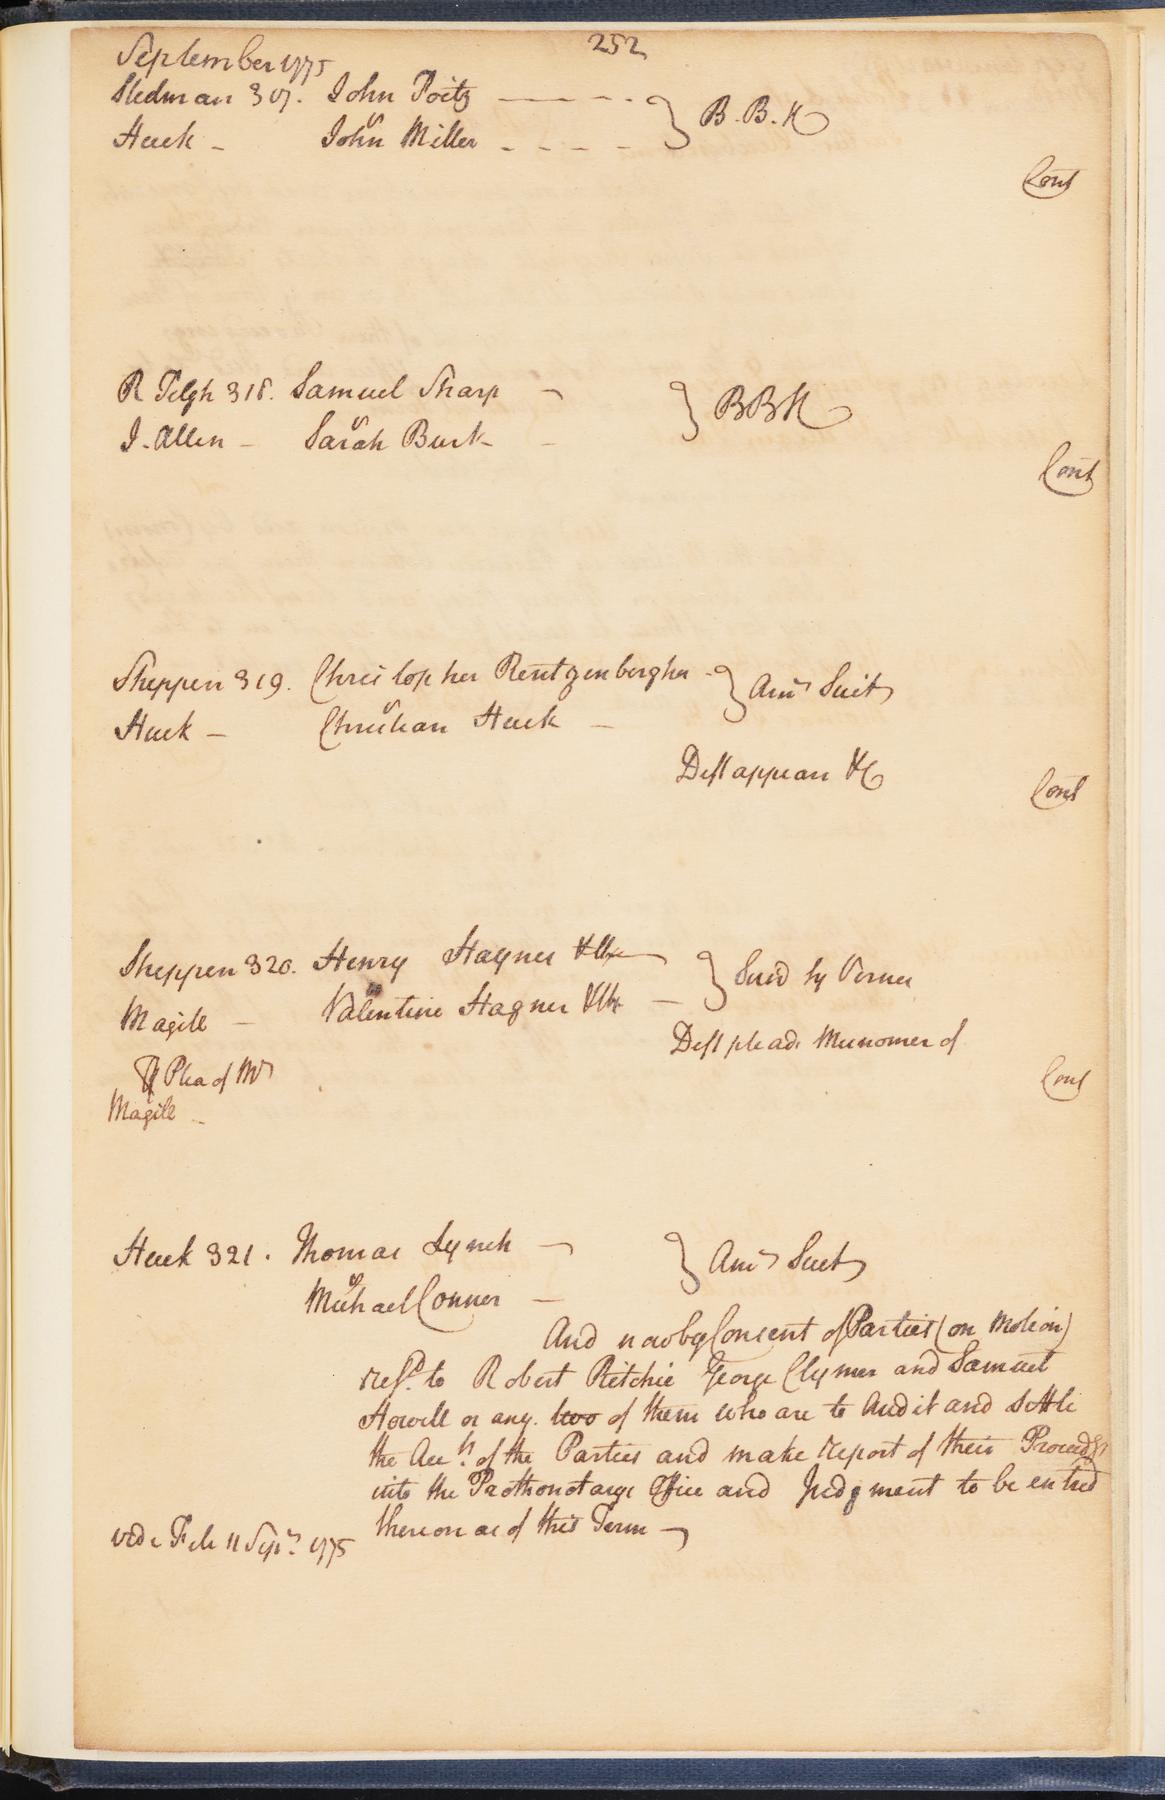 252
September 1775
Stedman 307. John Poitz } B. B. K
vs
Huck - John Miller
Cont
R Tilgh 318. Samuel Sharp } BBK
vs
J. Allen - Sarah Burk
Cont
Sheppen 319. Christopher Rentzenbergher } Ami Suit
vs
Huck - Christian Huck -
Deft appears &c
Cont
Sheppen 320. Henry Hagner & Ux } by
vs
Magill - Valentine Hagner & Ux -
Deft pleads Misnomer of
Plea of Mr
Cont
Magill -
Huck 321. Thomas Lynch } Ami Suit
vs
Michael Conner -
And now by Consent of Parties (on Motion)
refd. to Robert Ritchie George Clymer and Samuel
Howell or any two of them who are to Audit and settle
the Accts. of the Parties and make report of their Proceedgs
into the Prothonotarys Office and Judgment to be entred
thereon as of this Term
vide File 11 Sepr. 1775